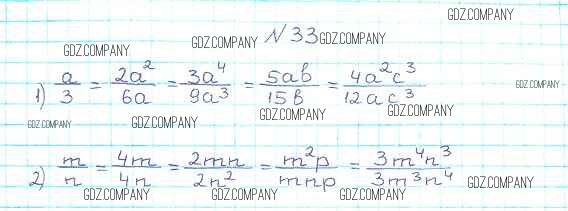 GDZ.COMPANY
GDZ.COMPANY GDZ.COMPANY № 33 GDZ.COMPANY
1) a/3 = 2a²/6a = 3a⁴/9a³ = 5ab/15b = 4a²c³/12ac³ GDZ.COMPANY
GDZ.COMPANY GDZ.COMPANY GDZ.COMPANY GDZ.COMPANY
2) m/n = 4m/4n = 2mn/2n² = m²p/mnp = 3m⁴n³/3m³n⁴ GDZ.COMPANY
GDZ.COMPANY GDZ.COMPANY GDZ.COMPANY